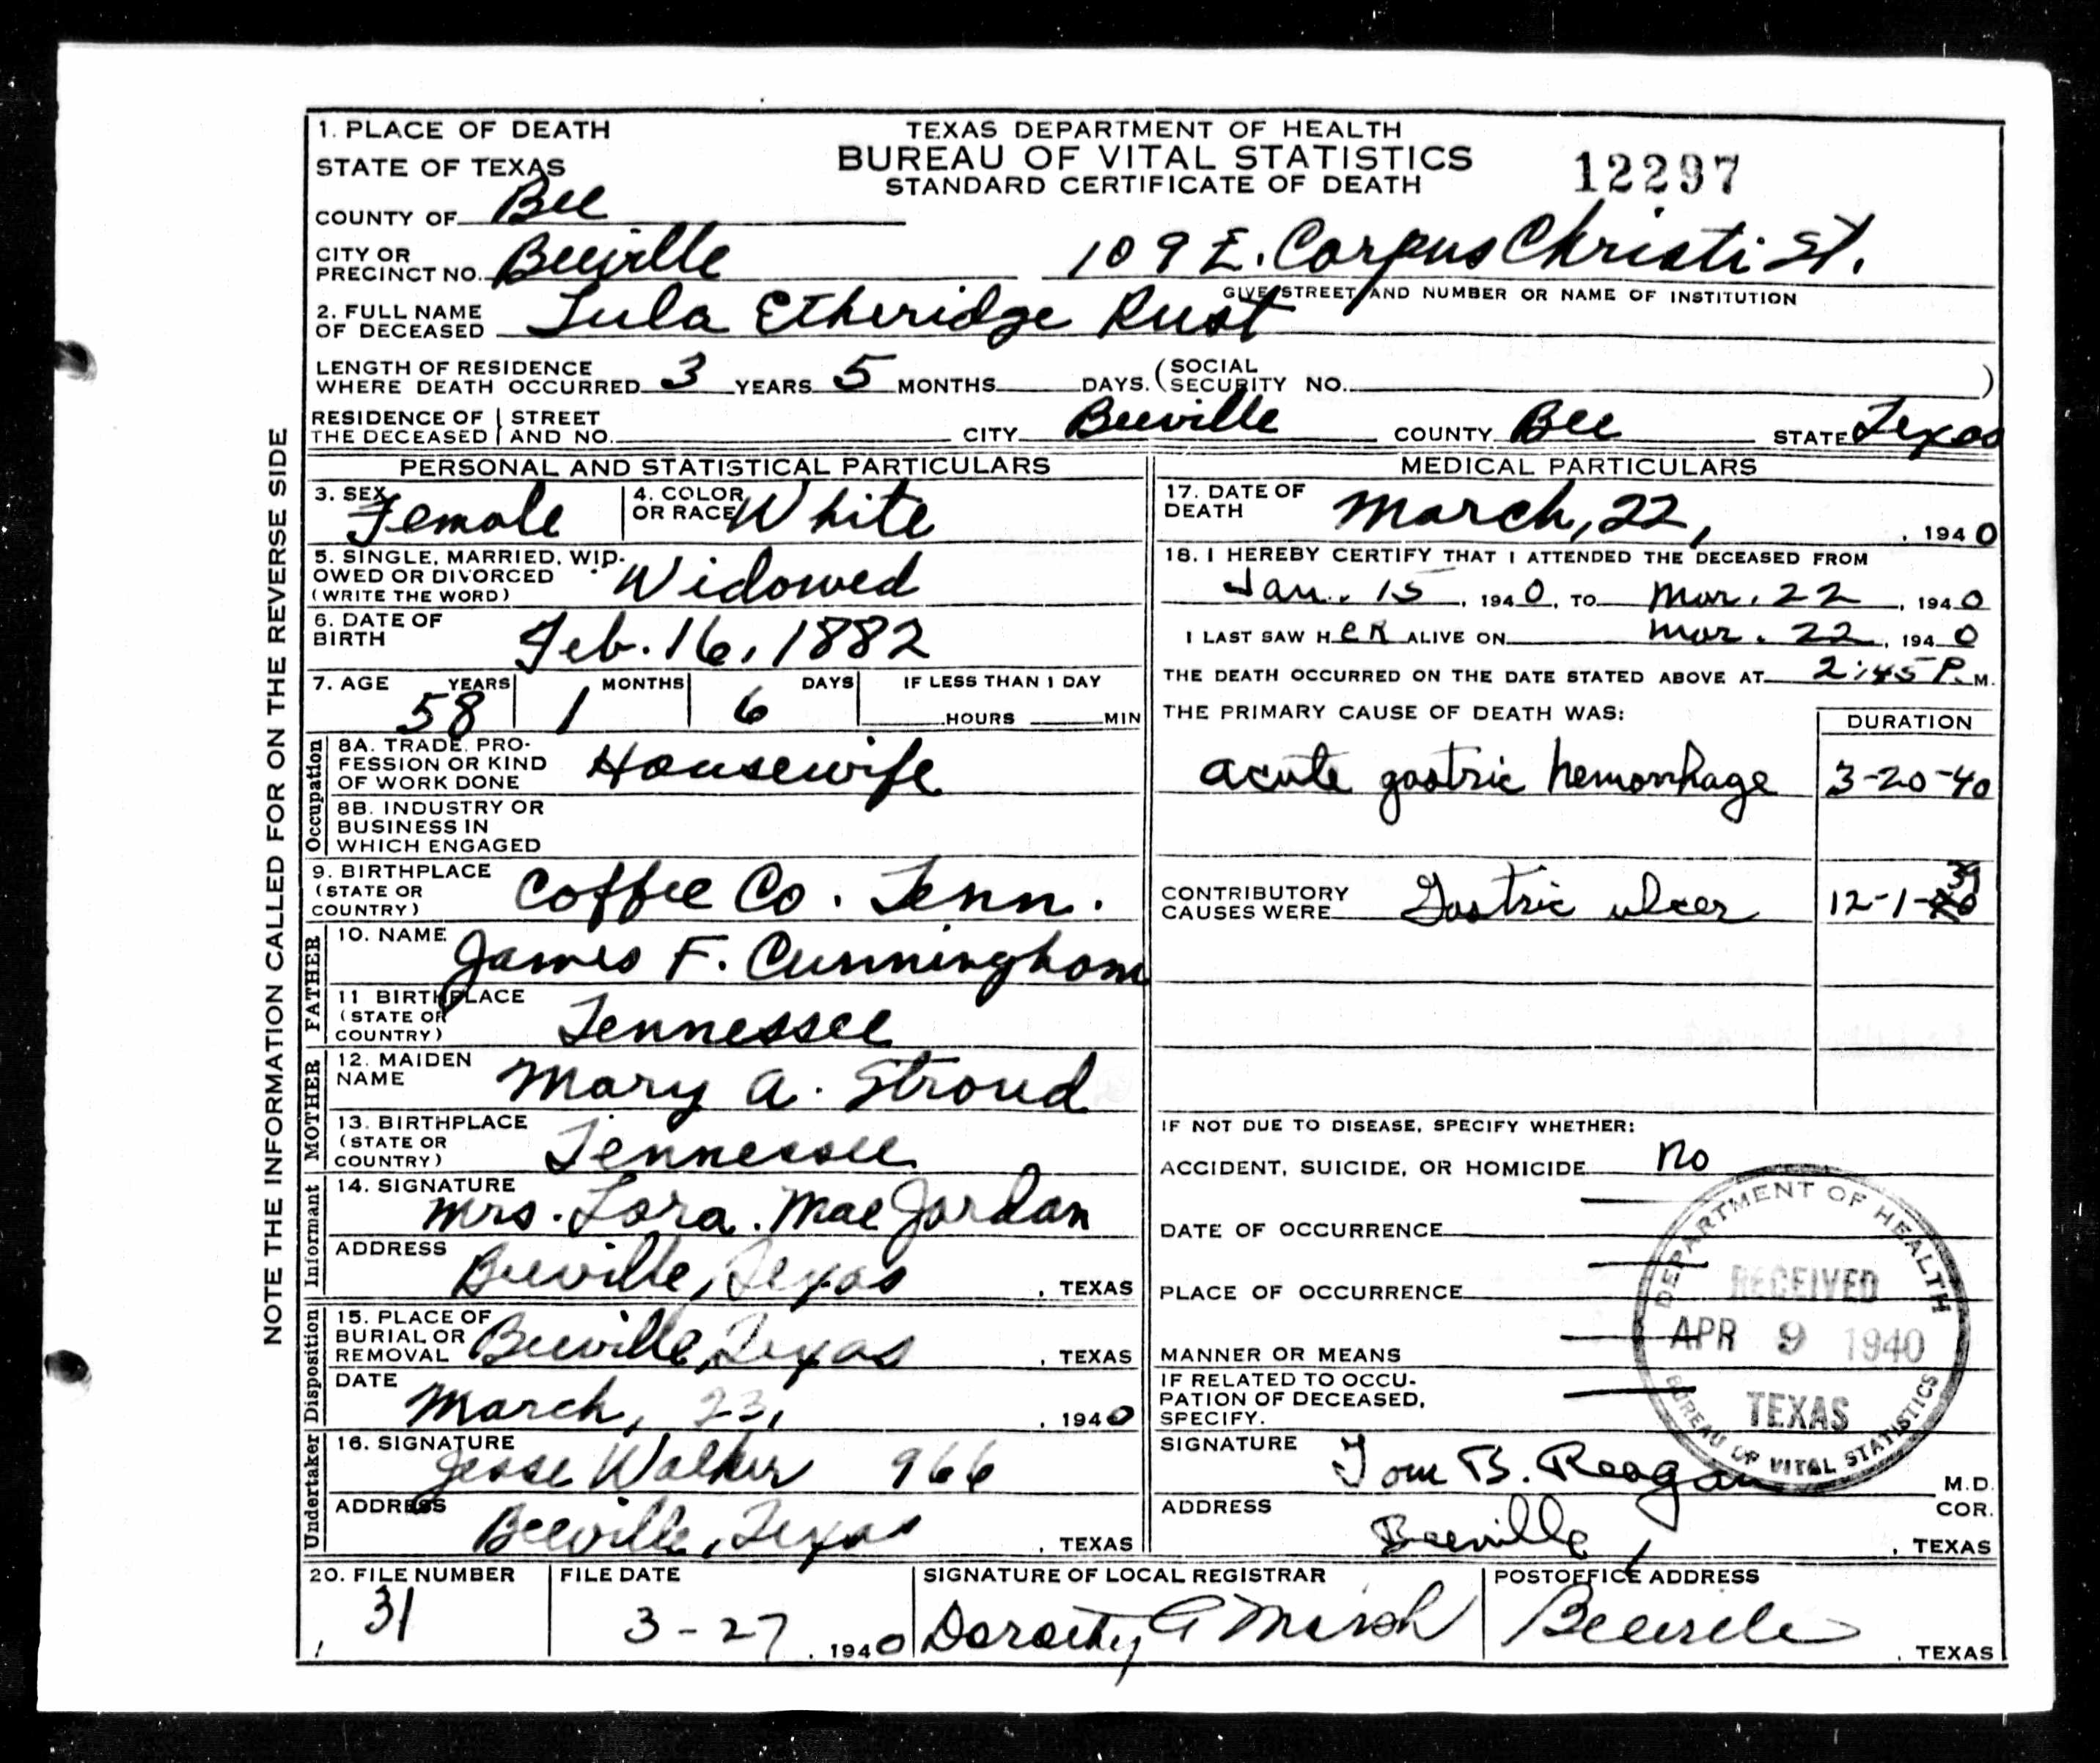 TEXAS DEPARTMENT OF HEALTH
BUREAU OF VITAL STATISTICS
STANDARD CERTIFICATE OF DEATH
12297
1. PLACE OF DEATH
STATE OF TEXAS
COUNTY OF Bee
CITY OR PRECINCT NO. Beeville 109 E. Corpus Christi St.
GIVE STREET AND NUMBER OR NAME OF INSTITUTION
2. FULL NAME OF DECEASED Lula Etheridge Rust
LENGTH OF RESIDENCE WHERE DEATH OCCURRED 3 YEARS 5 MONTHS DAYS. (SOCIAL SECURITY NO. )
RESIDENCE OF THE DECEASED STREET AND NO. CITY Beeville COUNTY Bee STATE Texas
NOTE THE INFORMATION CALLED FOR ON THE REVERSE SIDE
PERSONAL AND STATISTICAL PARTICULARS
3. SEX Female 4. COLOR OR RACE White
5. SINGLE, MARRIED, WIDOWED OR DIVORCED (WRITE THE WORD) Widowed
6. DATE OF BIRTH Feb. 16, 1882
7. AGE YEARS 58 MONTHS 1 DAYS 6 IF LESS THAN 1 DAY HOURS MIN
Occupation
8A. TRADE, PROFESSION OR KIND OF WORK DONE Housewife
8B. INDUSTRY OR BUSINESS IN WHICH ENGAGED
9. BIRTHPLACE (STATE OR COUNTRY) Coffee Co. Tenn.
FATHER
10. NAME James F. Cunningham
11 BIRTHPLACE (STATE OR COUNTRY) Tennessee
MOTHER
12. MAIDEN NAME Mary A. Stroud
13. BIRTHPLACE (STATE OR COUNTRY) Tennessee
Informant
14. SIGNATURE Mrs. Lora. Mae Jordan
ADDRESS Beeville, Texas , TEXAS
Disposition
15. PLACE OF BURIAL OR REMOVAL Beeville, Texas , TEXAS
DATE March, 23, , 1940
Undertaker
16. SIGNATURE Jesse Walker 966
ADDRESS Beeville, Texas , TEXAS
MEDICAL PARTICULARS
17. DATE OF DEATH March, 22, , 1940
18. I HEREBY CERTIFY THAT I ATTENDED THE DECEASED FROM
Jan. 15, 1940, TO Mar. 22, 1940
I LAST SAW HER ALIVE ON Mar. 22, 1940
THE DEATH OCCURRED ON THE DATE STATED ABOVE AT 2:45 P. M.
THE PRIMARY CAUSE OF DEATH WAS: DURATION
acute gastric hemorrhage 3-20-40
CONTRIBUTORY CAUSES WERE Gastric ulcer 12-1-39
IF NOT DUE TO DISEASE, SPECIFY WHETHER:
ACCIDENT, SUICIDE, OR HOMICIDE no
DATE OF OCCURRENCE
PLACE OF OCCURRENCE
MANNER OR MEANS
IF RELATED TO OCCUPATION OF DECEASED, SPECIFY.
DEPARTMENT OF HEALTH
RECEIVED
APR 9 1940
TEXAS
BUREAU OF VITAL STATISTICS
SIGNATURE Tom B. Reagan M.D. COR.
ADDRESS Beeville, , TEXAS
20. FILE NUMBER 31 FILE DATE 3-27, 1940 SIGNATURE OF LOCAL REGISTRAR Dorothy POSTOFFICE ADDRESS Beeville , TEXAS